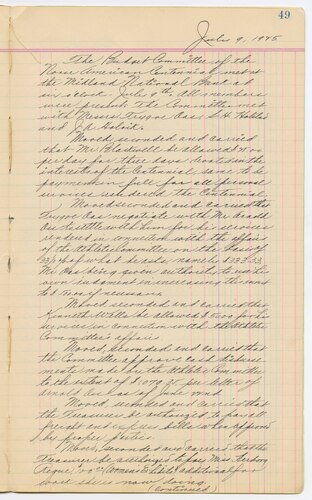 49
July 9, 1925
The Budget Committee of the
Norse American Centennial met at
the Midland National Bank at
six o'clock July 9th. All members
were present. The Committee met
with Messrs Trygve Oas, S. H. Holstad
and J A Holvik.
Moved, seconded and carried
that Mr Bladwell be allowed
per day for three days in the
interest of the Centennial same to be
payment in full for all personal
services rendered the Centennial
Moved seconded and carried that
Trygve Oas negotiate with Mr Arnold
Oss & settle with him for his services
rendered in connection with the affairs
of the Athletic Committee on the basis of
of what he asks namely $
Mr Oas being given authority to use his
own judgment in increasing the amount
to if necessary.
Moved seconded and carried that
Kenneth Wells be allowed $ for his
services in connection with the Athletic
Committee's affairs.
Moved, seconded and carried that
the Committee approve cash disburse-
ments made by the Athletic Committee
to the extent of $ per letter of
Arnold Oss as of June
Moved, seconded and carried that
the Treasurer be authorized to pay all
freight and express bills when approved
by proper parties.
Moved, seconded and carried that the
Treasurer be authorized to pay Mrs.
additional for
work she is now doing.
(Continued)